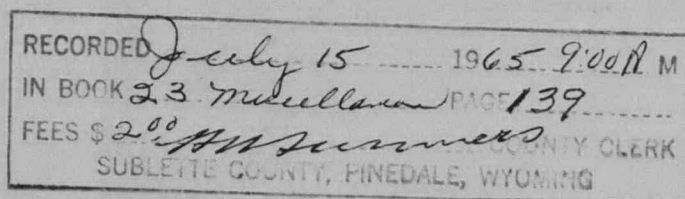 RECORDED July 15 1965 9:00 A M
IN BOOK 23 Miscellaneous PAGE 139
FEES $ 2.00 COUNTY CLERK
SUBLETTE COUNTY, PINEDALE, WYOMING